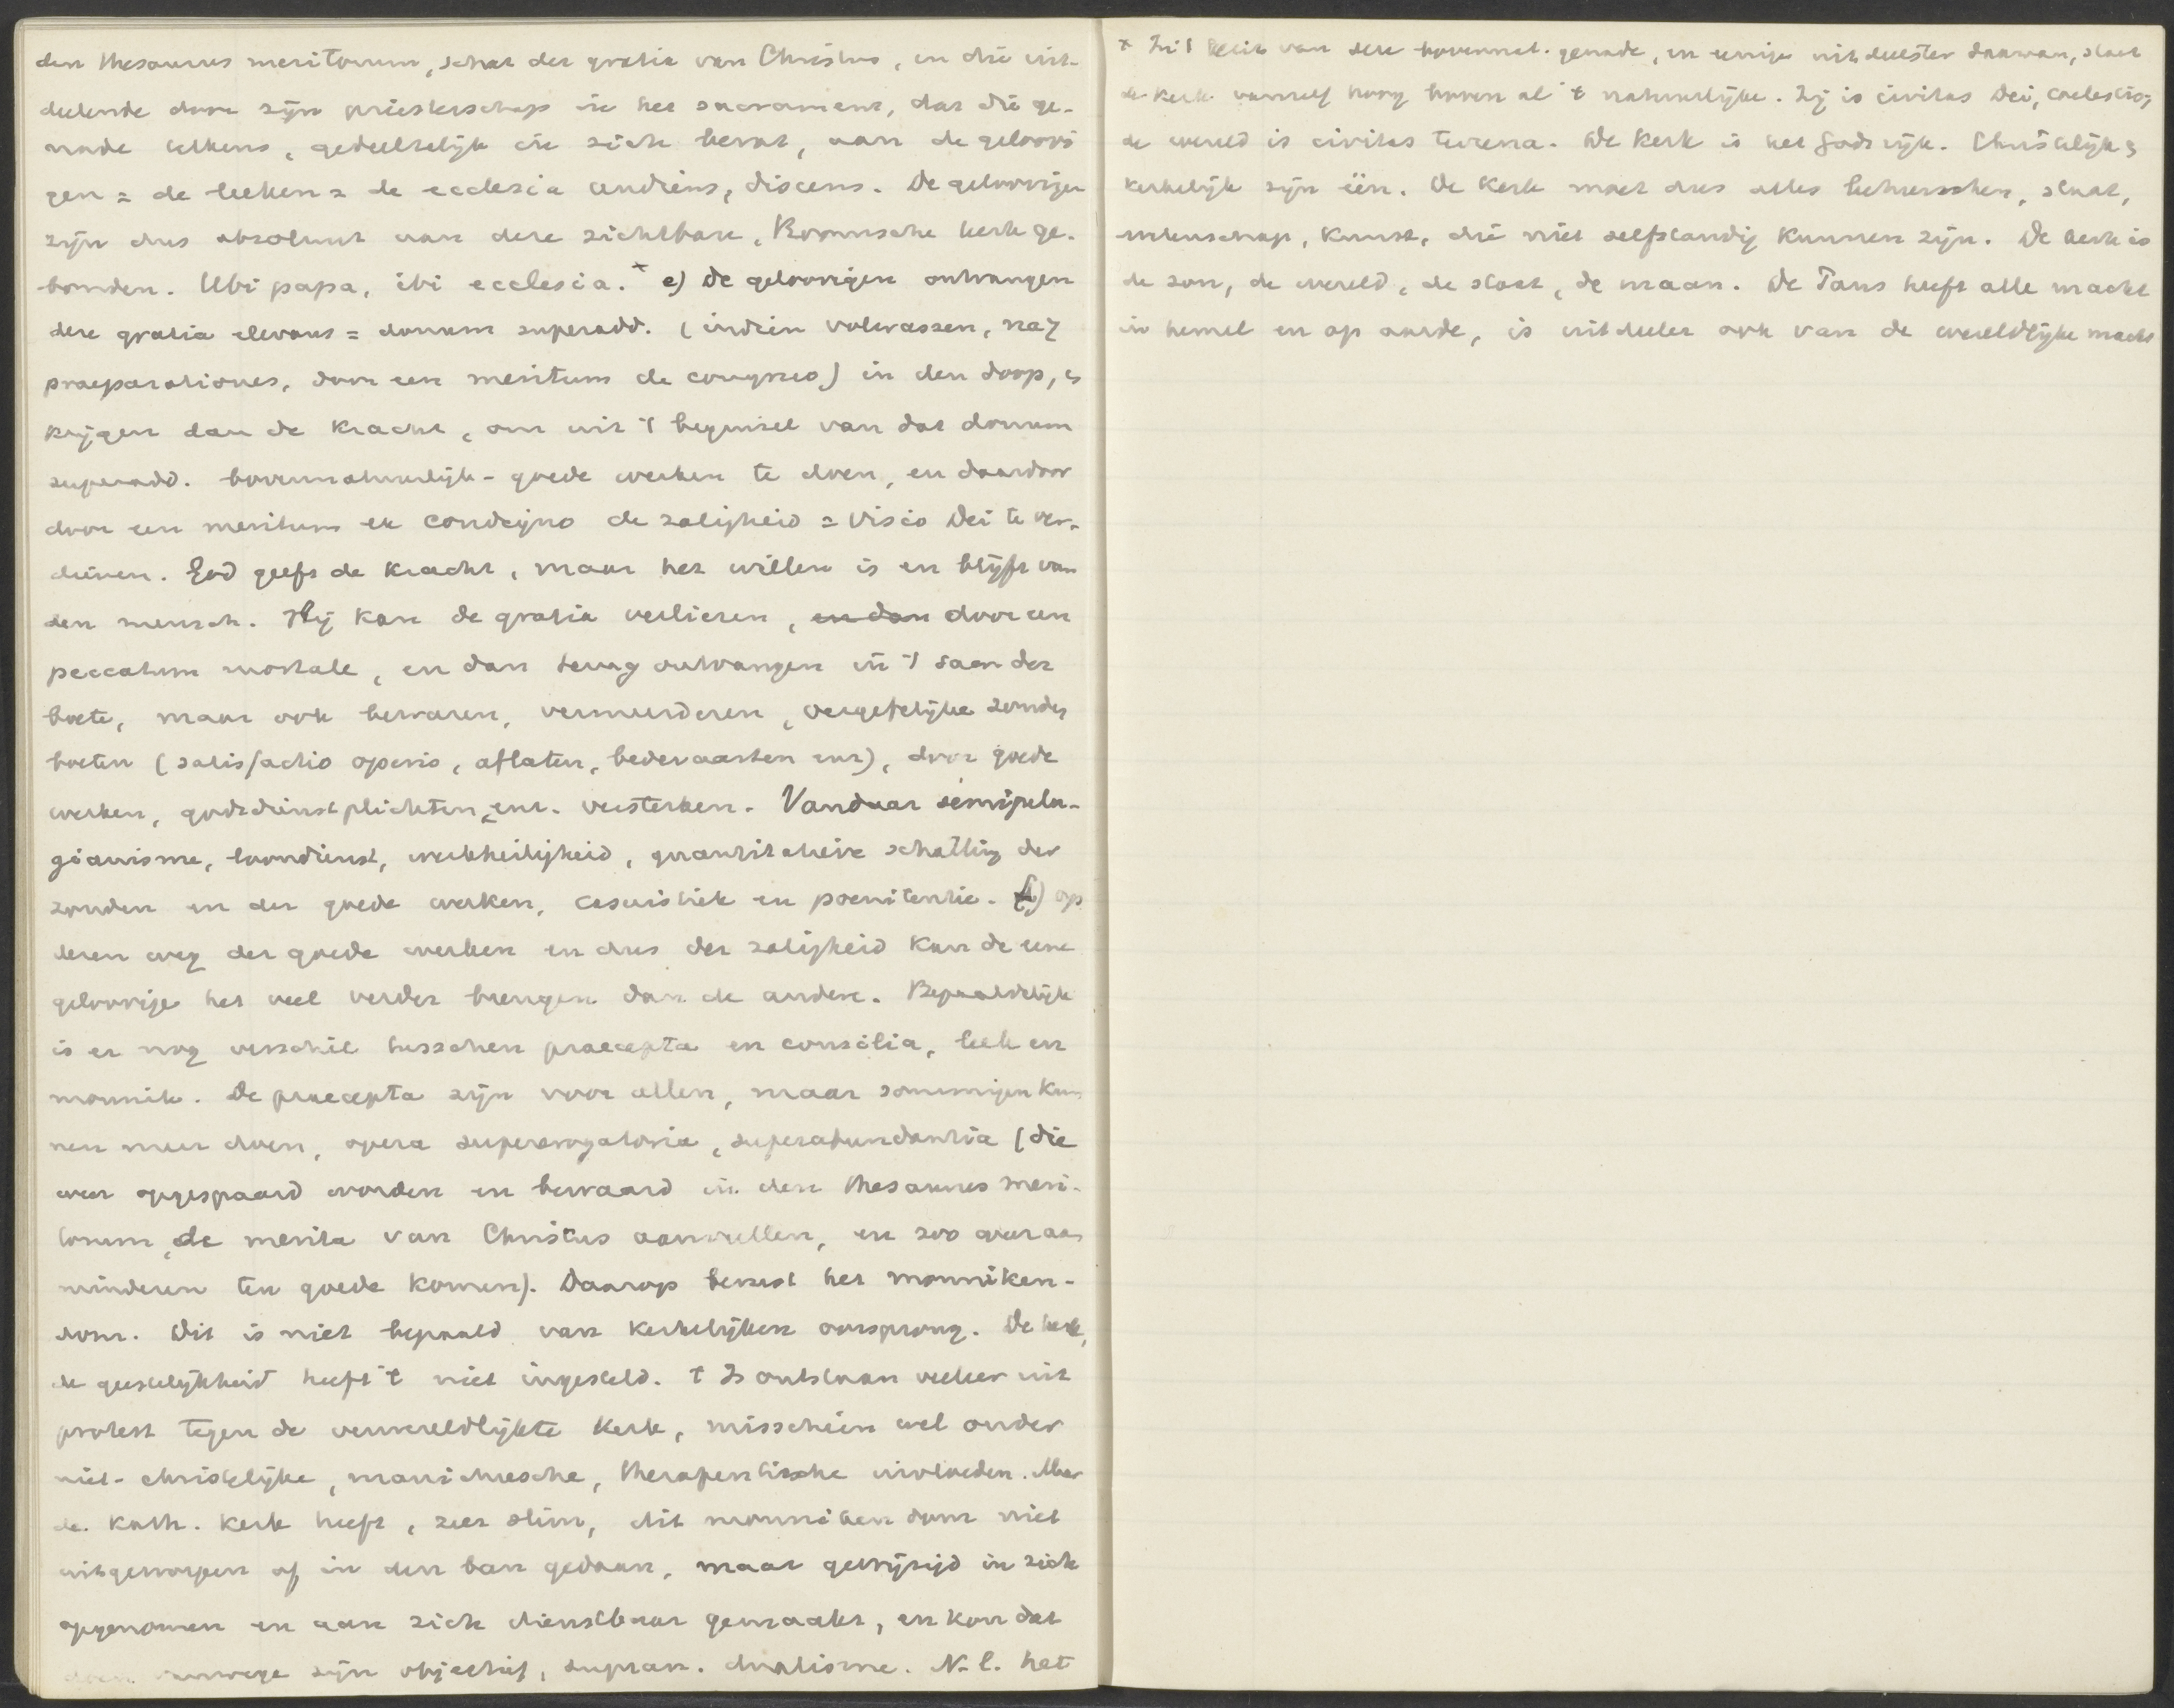 den thesaurus meritorum, schat der gratia van Christus, en die uit-
deelende door zijn priesterschap in het sacrament, dat die ge-
nade telkens, gedeeltelijk in zich bevat, aan de geloovi
gen = de leeken = de ecclesia audiens, discens. De geloovigen
zijn dus absoluut aan deze zichtbare, Roomsche kerk ge-
bonden. Ubi papa, ibi ecclesia. x e) De geloovigen ontvangen
deze gratia elevans = donum superadd. (indien volwassen, na 7
praeparationes, door een meritum de congruo) in den doop, &
krijgen dan de kracht, om uit 't beginsel van dat donum
superadd. bovennatuurlijk-goede werken te doen, en daardoor
door een meritum ex condigno de zaligheid = visio Dei te ver-
dienen. God geeft de kracht, maar het willen is en blijft van
den mensch. Hij kan de gratia verliezen, en dan door een
peccatum mortale, en dan terug ontvangen in 't sacr. der
boete, maar ook bewaren, vermeerderen, vergefelijke zonden
boeten (satisfactio operis, aflaten, bedevaarten enz), door goede
werken, godsdienstplichten, enz. versterken. Vandaar semipela-
gianisme, loondienst, werkheiligheid, quantitatieve schatting der
zonden en der goede werken, casuistiek en poenitentie. f) op
dezen weg der goede werken en dus der zaligheid kan de eene
geloovige het veel verder brengen dan de andere. Bepaaldelijk
is er nog verschil tusschen praecepta en consilia, leek en
monnik. De praecepta zijn voor allen, maar sommigen kun
nen meer doen, opera supererogatoria, superabundantia (die
weer opgespaard worden en bewaard in den thesaurus meri-
torum, de merita van Christus aanvullen, en zoo weer aan
minderen ten goede komen). Daarop berust het monniken-
dom. Dit is niet bepaald van kerkelijken oorsprong. De kerk,
de geestelijkheid heeft 't niet ingesteld. 't Is ontstaan veeleer uit
protest tegen de verwereldlijkte kerk, misschien wel onder
niet-christelijke, manicheesche, therapeutische invloeden. Maar
de Kath. kerk heeft, zeer slim, dit monnikendom niet
uitgeworpen of in den ban gedaan, maar gewijzigd in zich
opgenomen en aan zich dienstbaar gemaakt, en kon dat
doen vanwege zijn objectief, supran. dualisme. N.l. het
x In 't bezit van deze bovennat. genade, en eenige uitdeelster daarvan, staat
de kerk vanzelf hoog boven al 't natuurlijke. Zij is civitas Dei, coelestis;
de wereld is civitas terrena. De kerk is het Godsrijk. Christelijk &
kerkelijk zijn één. De kerk moet dus alles beheerschen, staat,
wetenschap, kunst, die niet zelfstandig kunnen zijn. De kerk is
de zon, de wereld, de staat, de maan. De Paus heeft alle macht
in hemel en op aarde, is uitdeeler ook van de wereldlijke macht